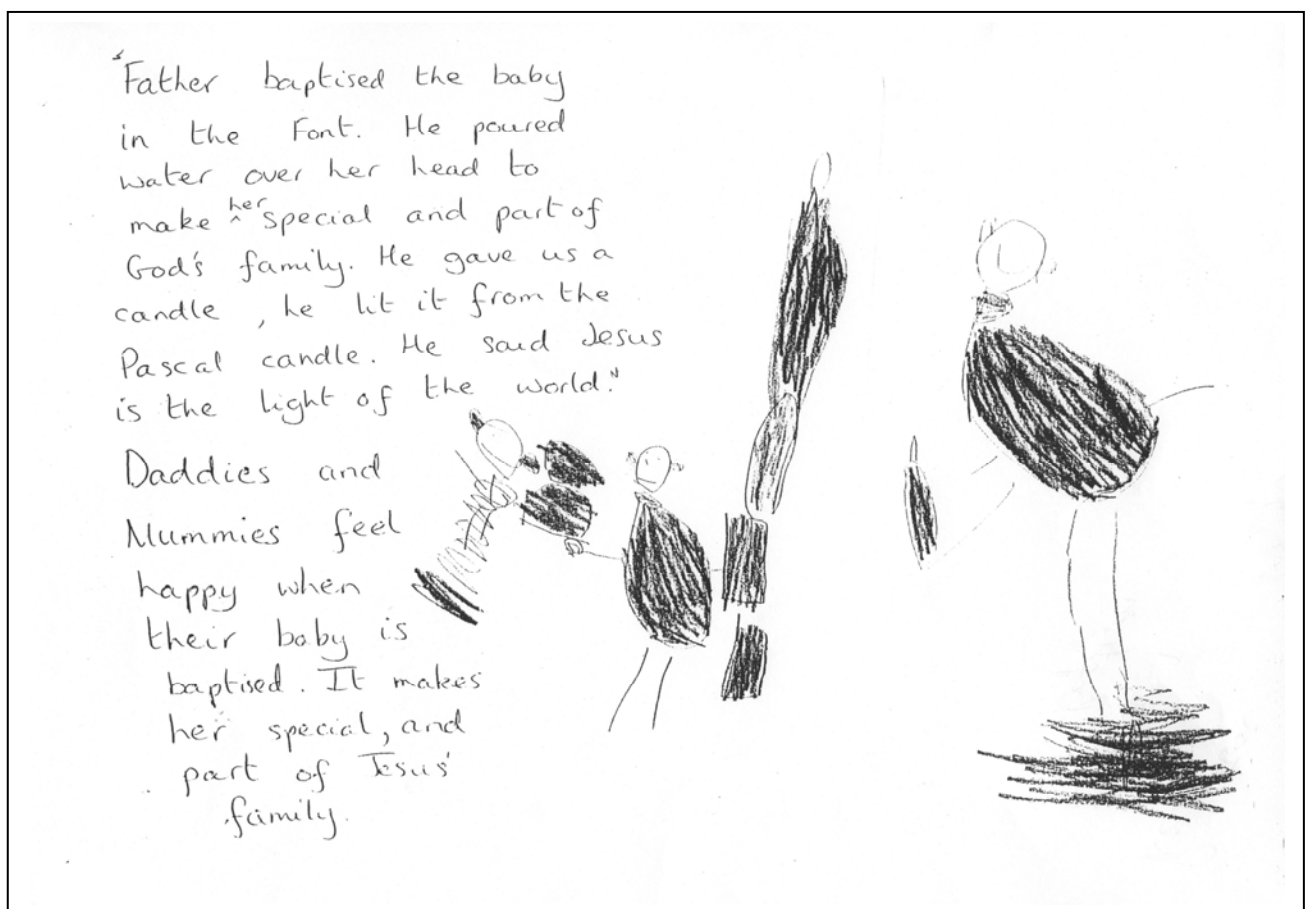 "Father baptised the baby
in the Font. He poured
water over her head to
make her special and part of
God's family. He gave us a
candle, he lit it from the
Pascal candle. He said Jesus
is the light of the world."
Daddies and
Mummies feel
happy when
their baby is
baptised. It makes
her special, and
part of Jesus'
family.